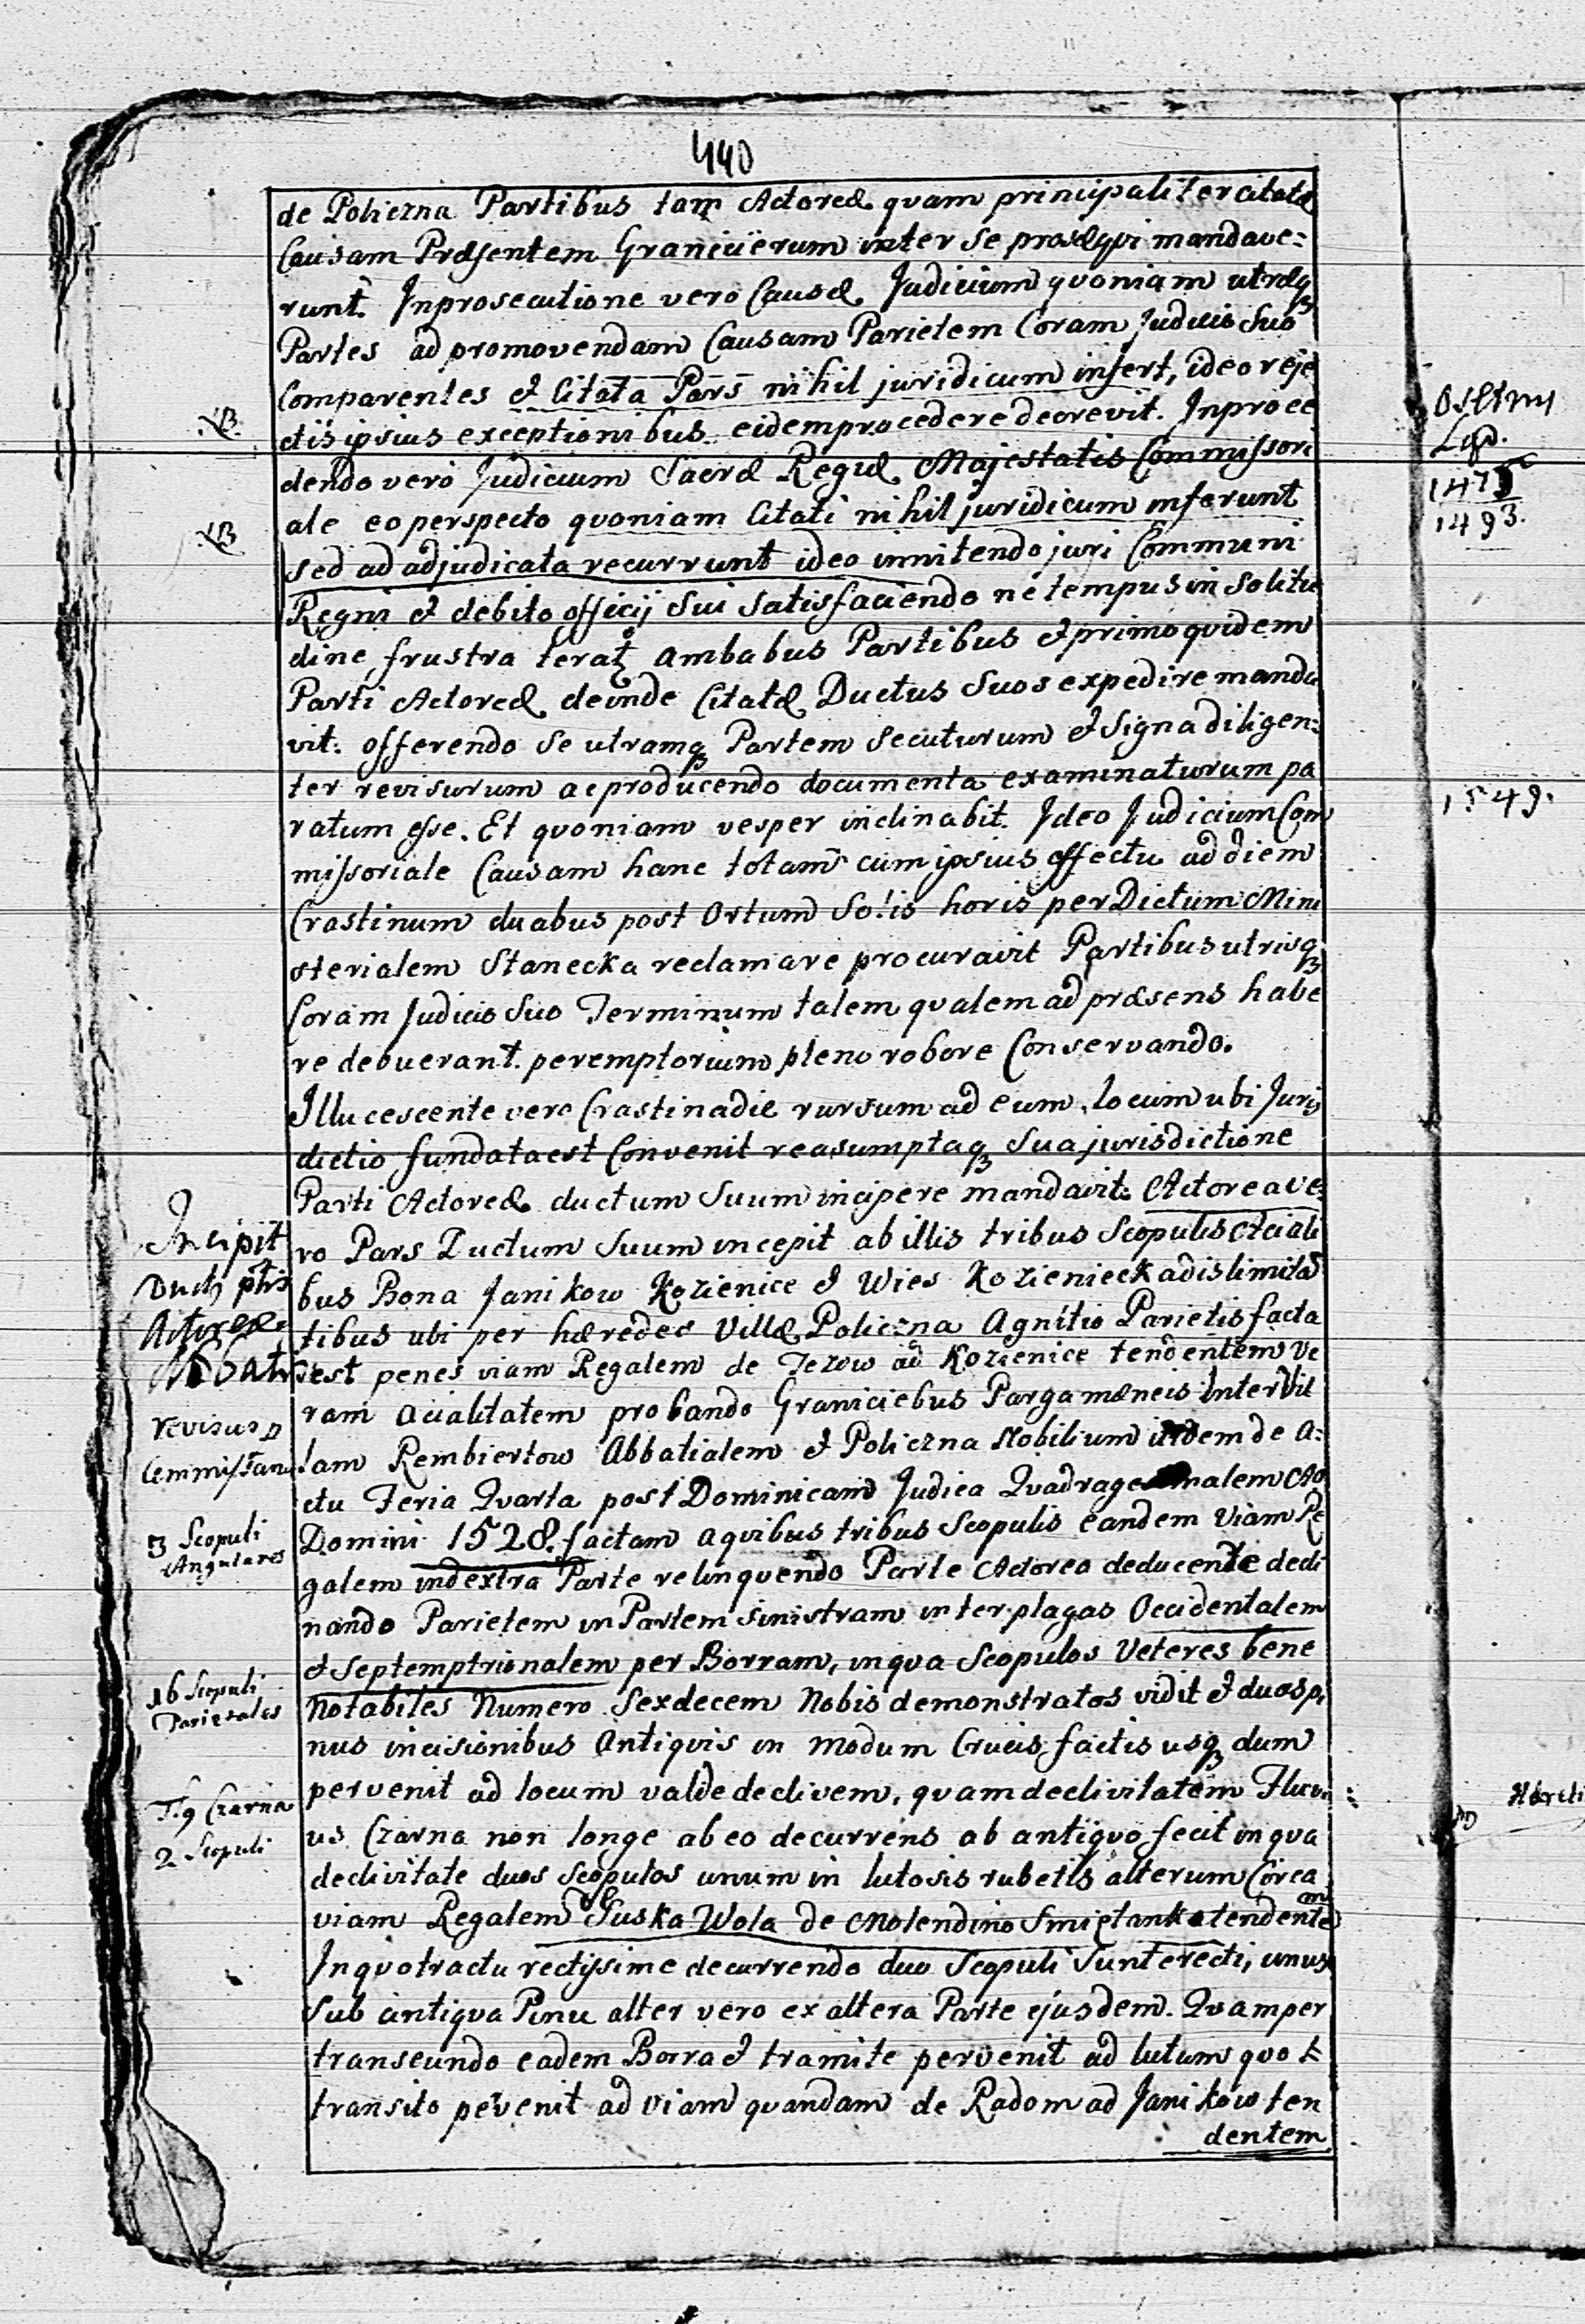 440
de Policzna Partibus tam Actoreæ quam principaliter citatæ
Causam Præsentem Granicierum inter se prosequi mandave:
runt. Inprosecutione vero Causæ Judicium quoniam utræq₃
Partes ad promovendam Causam Parietem Coram Judicio Suo
Comparentes et Citata Pars nihil juridicum infert, ideo reje
ctis ipsius exceptionibus eidem procedere decrevit. Inproce
dendo vero Judicium Sacræ Regiæ Majestatis Commissori
ale eo perspecto quoniam Citati nihil juridicum inferunt
sed ad adjudicata recurrunt ideo innitendo juri Communi
Regni et debito officij Sui Satisfaciendo ne tempus in Solitu
dine frustra terat₃ ambabus Partibus et primo quidem
Parti Actoreæ deinde Citatæ Ductus Suos expedire manda
vit: offerendo se utramq₃ Partem secuturum et Signa diligen:
ter revisurum ac producendo documenta examinaturum pa
ratum esse. Et quoniam vesper inclinabit. Ideo Judicium Com
missoriale Causam hanc totam cum ipsius effectu ad diem
Crastinum duabus post Ortum Solis horis per Dictum Mini
sterialem Stanecka reclamare procuravit Partibus utrisq₃
Coram Judicio Suo Terminum talem qualem ad præsens habe
re debuerant peremptorium pleno robore Conservando.
Illucescente vero Crastina die rursum ad eum locum ubi Juris
dictio fundata est Convenit reasumptaq₃ Sua jurisdictione
Parti Actoreæ ductum Suum incipere mandavit. Actorea ve:
ro Pars Ductum Suum incepit ab illis tribus Scopulis Aciali
bus Bona Janikow Kozienice et Wies Kozieniecka dislimitan
tibus ubi per hæredes Villæ Policzna Agnitio Parietis facta
est penes viam Regalem de Jezow ad Kozienice tendentem Ve
ram acialitatem probando Graniciebus Pargamæneis Inter Vil
lam Rembiertow Abbatialem et Policzna Nobilium de A:
ctu Feria Quarta post Dominicam Judica Ao
Domini 1528. factam a quibus tribus Scopulis eandem Viam Re
galem in dextra Parte relinquendo Parte Actorea deducente decli
nando Parietem in Partem Sinistram inter plagas Occidentalem
et Septemptrionalem per Borram, in qua Scopulos Veteres bene
Notabiles Numero Sexdecem Nobis demonstratos vidit et duos pi
nus incisionibus Antiquis in modum Crucis factis usq₃ dum
pervenit ad locum valde declivem, quam declivitatem Fluvi
us Czarna non longe ab eo decurrens ab antiquo fecit in qua
declivitate duos Scopulos unum in lutosis rubetis alterum Circa
viam Regalem de Suska Wola de Molendino Smietanka tendentem
In quo tractu rectissime decurrendo duo Scopuli Sunt erecti, unus
Sub antiqua Pinu alter vero ex altera Parte ejusdem. Quam per
transeundo eadem Borra et tramite pervenit ad lutum quo
transito pevenit ad Viam quandam de Radom ad Janikow ten
dentem
NB.
NB
Incipit
Duct₃ ptis
Actoreæ
Abbatis
revisus p
Commissarios
3 Scopuli
Angulares
16 Scopuli
Parietales
Czarna
2 Scopuli
1475
1493.
1549.